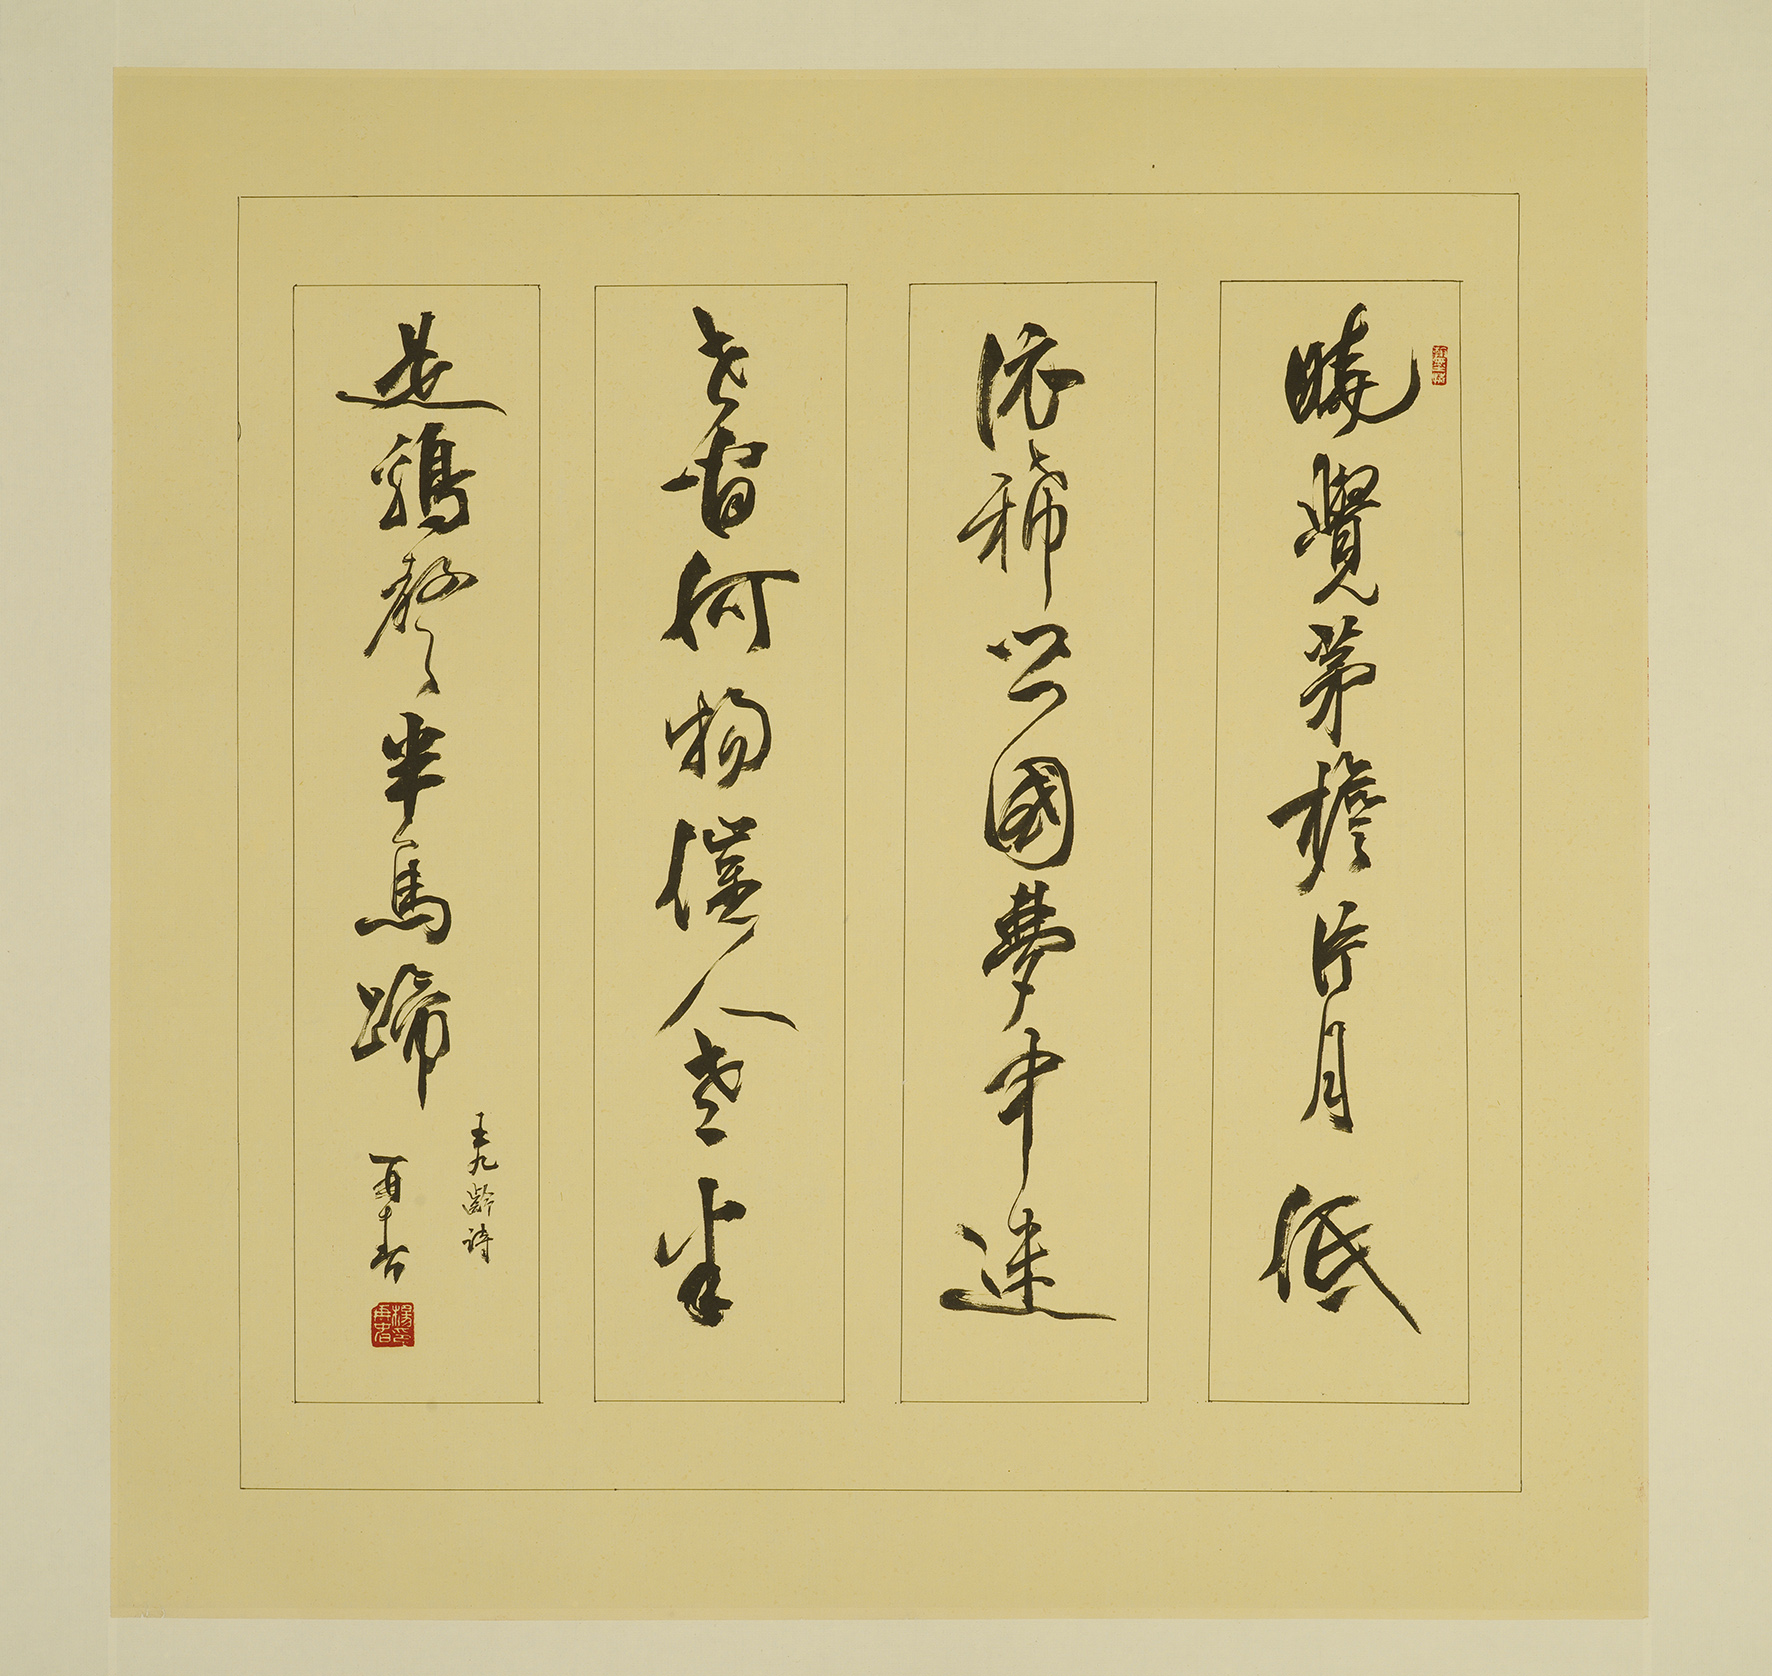 曉覺茅檐片月低
依稀鄉國夢中迷
世間何物催人老半
是鷄聲半馬蹄
王九齡詩
再春
楊再春印